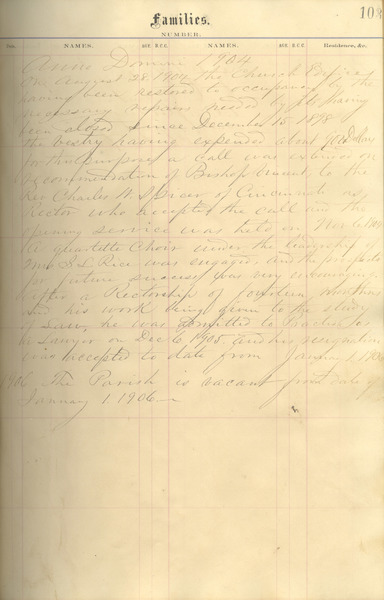 103
Families.
NUMBER.
NAMES. AGE. B.C.C. NAMES. AGE. B.C.C. Residence, &c.
Anno Domini 1904
On August 28 1904 the Church Edifice
having been restored to occupancy by the
necessary repairs needed by its having
been closed since December 15 1898
the vestry having expended about
for this purpose a call was extended on
recommendation of Bishop Vincent to the
Rev Charles W Spicer of Cincinnati as
Rector who accepted the call and the
opening service was held on Nov 6 1904
A quartette Choir under the leadership of
Mrs Rice was engaged, and the prospects
for future success was very encouraging
After a Rectorship of fourteen months
and his work being given to the study
of Law, he was admitted to practice as
a Lawyer on Dec 6 1905 and his resignation
was accepted to date from January 1 1906
1906 The Parish is vacant from date of
January 1 1906